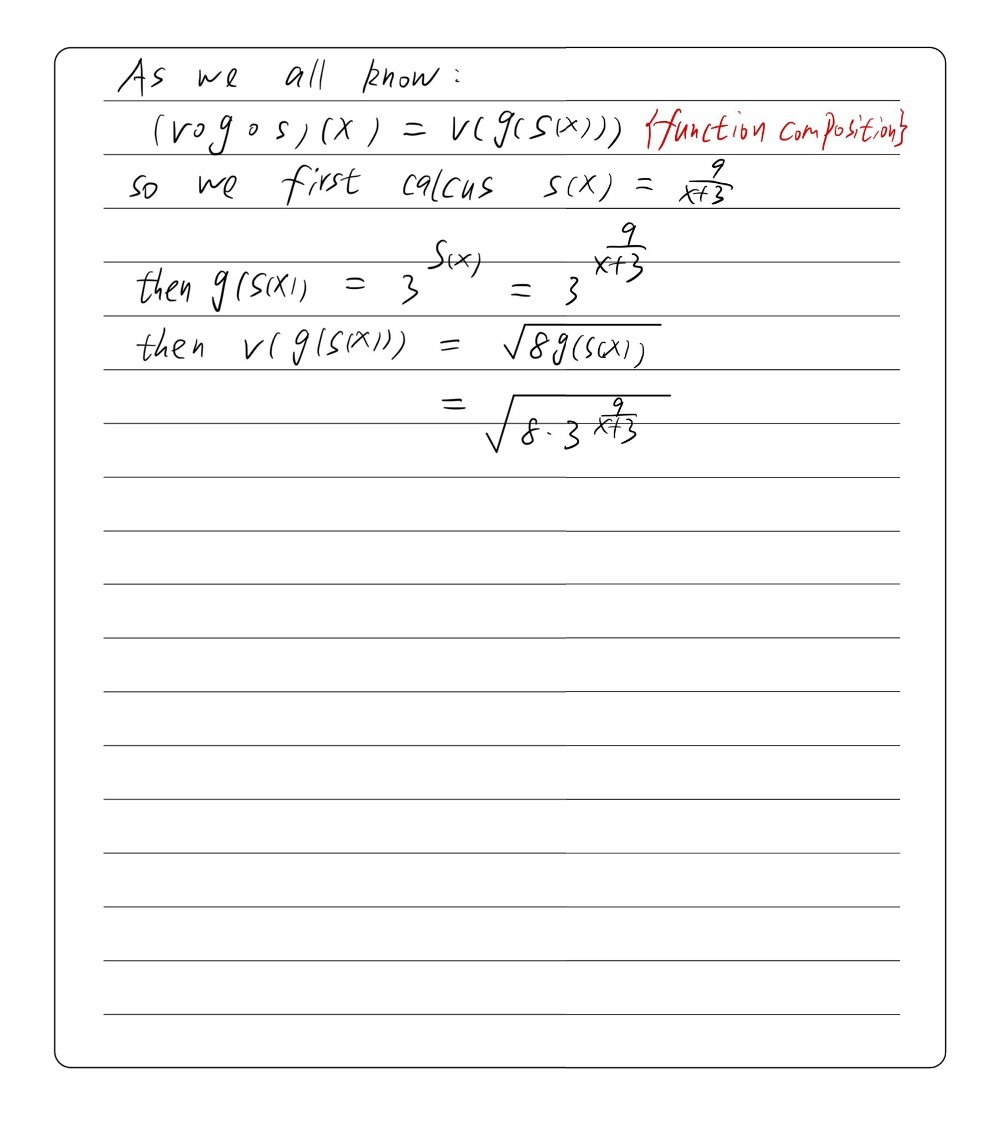 As we all know:
(v∘g∘s)(x) = v(g(s(x))) {function composition}
so we first calcus s(x) = 9/(x+3)
then g(s(x) = 3^(s(x)) = 3^(9/(x+3))
then v(g(s(x))) = √(8g(s(x))
= √(8·3^(9/(x+3)))